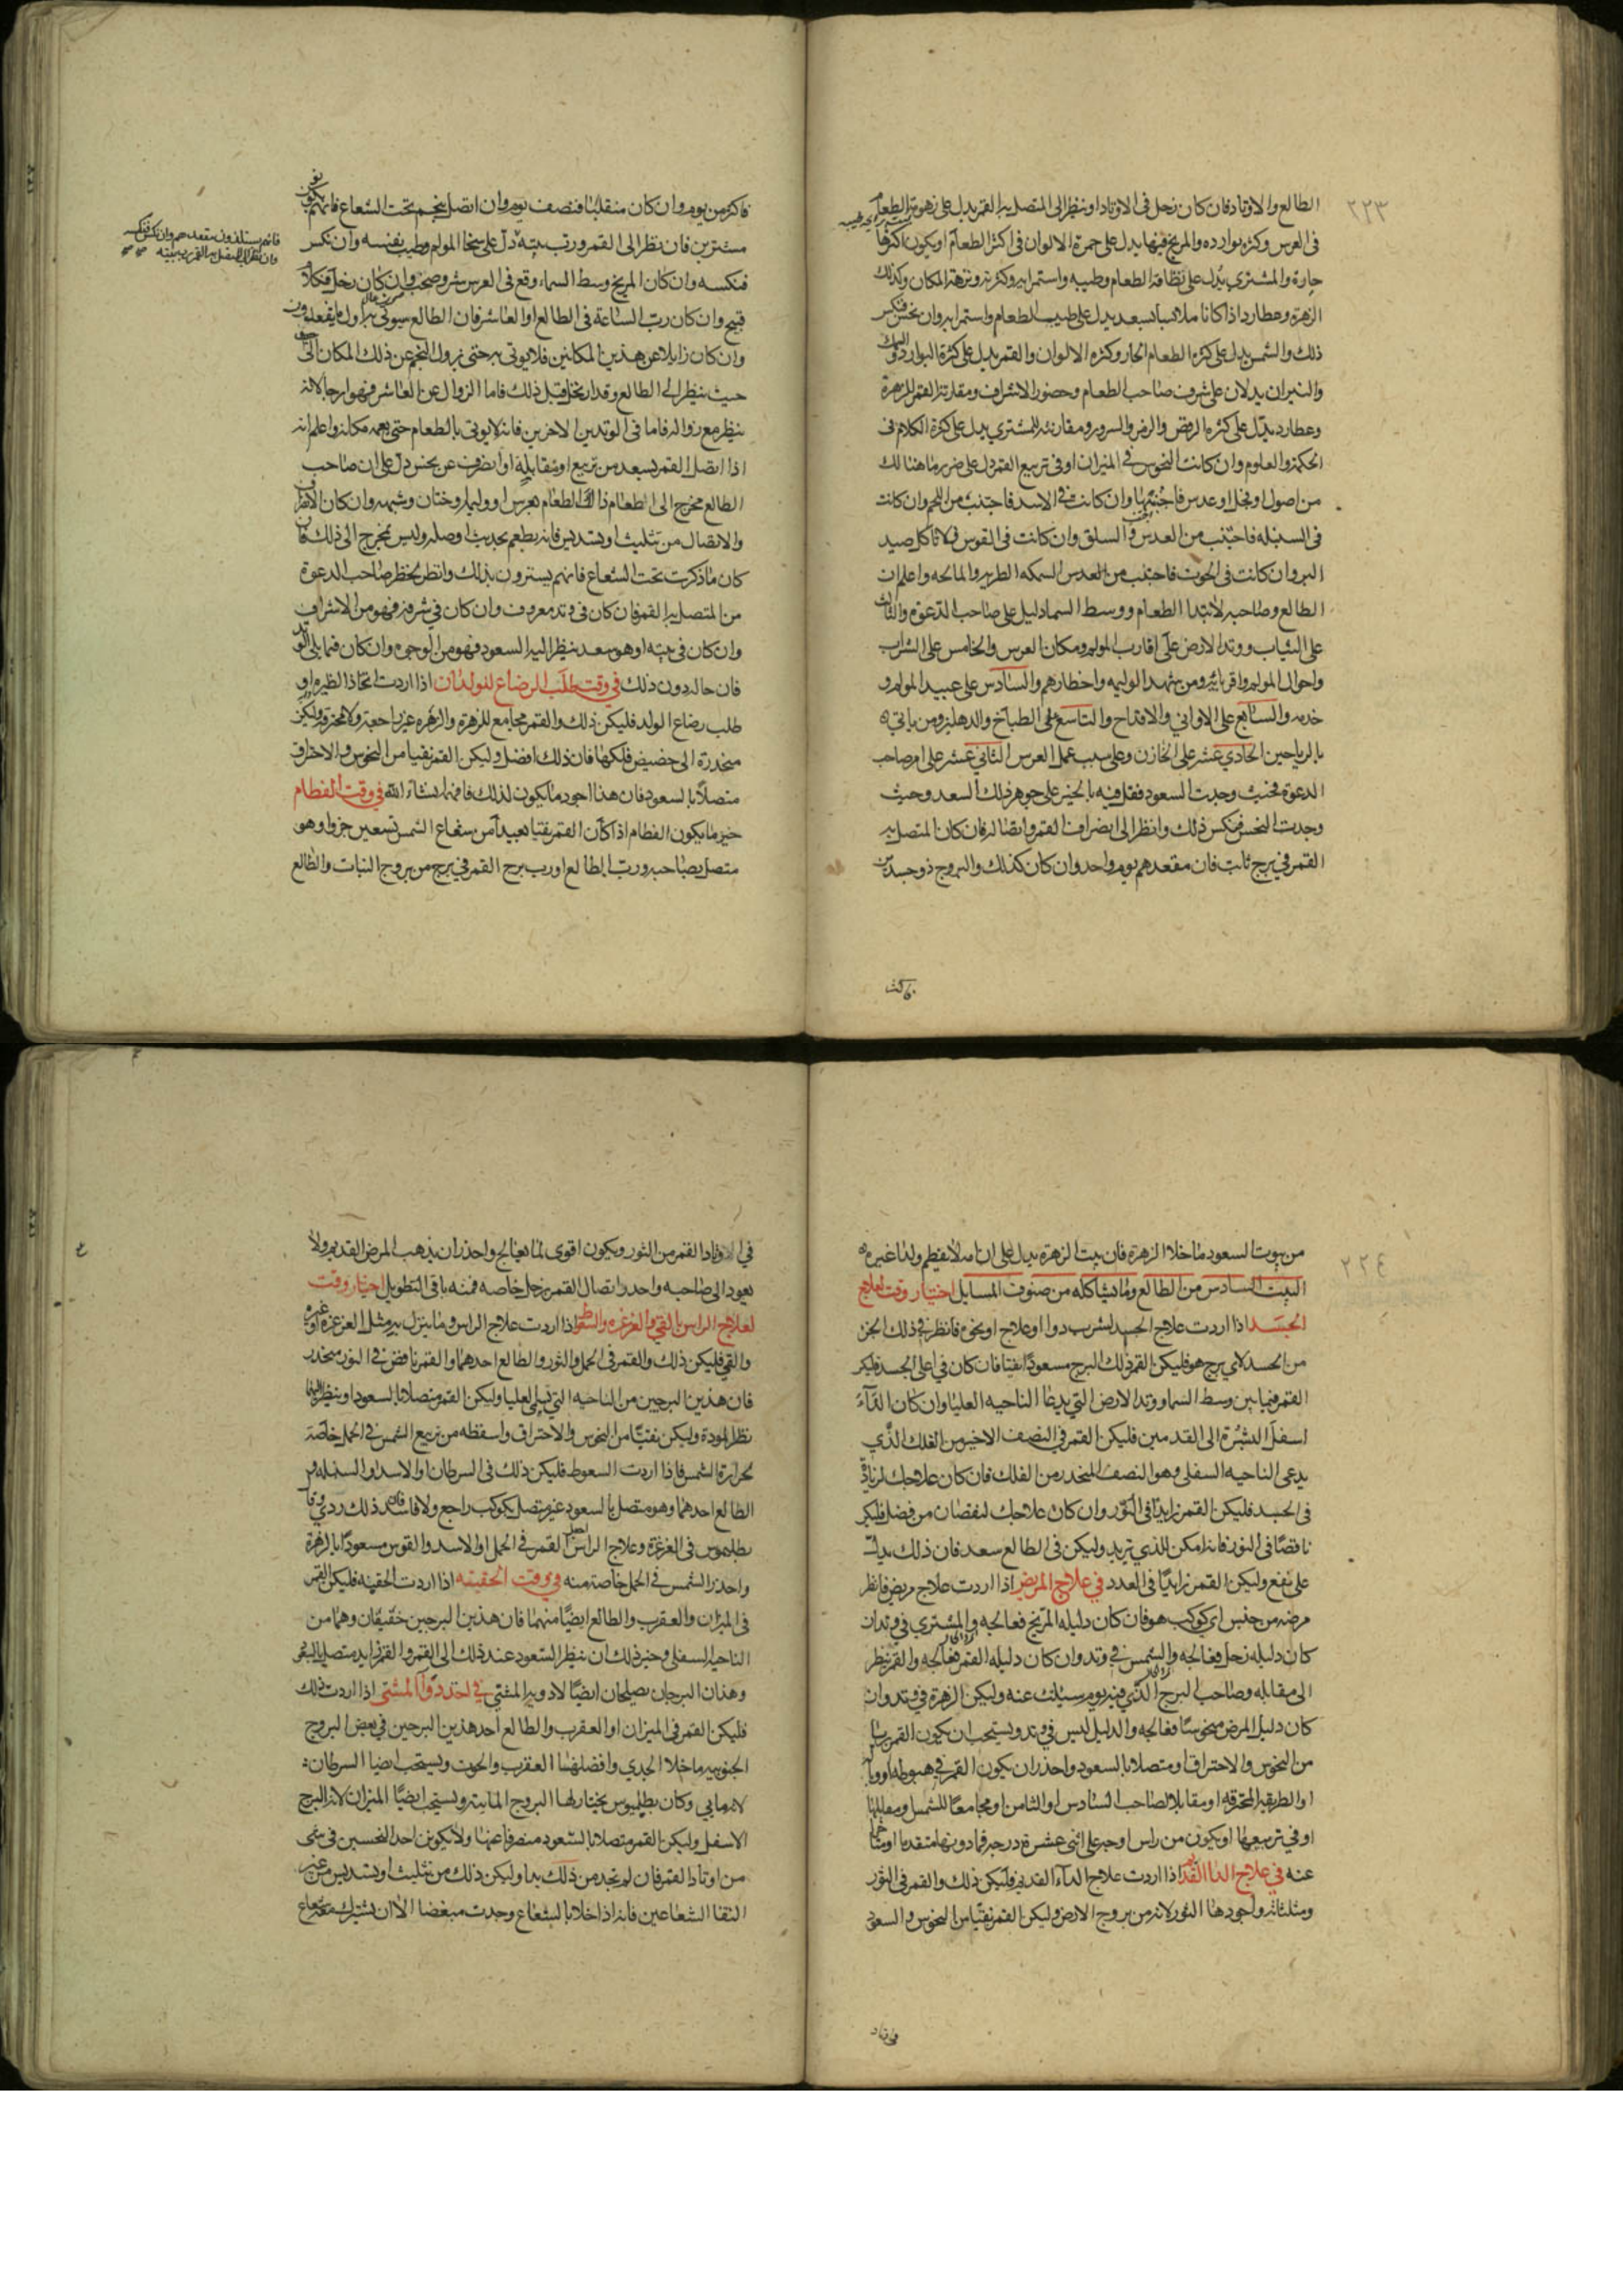 ٢٢٣
الطالع والاوتاد فان كان زحل فى الاوتاد او ينظر الى المتصل به القمر يدل على زهومة الطعام
فى العرس وكثرة بوارده والمريخ فيها يدل على حمرة الالوان فى اكثر الطعام او يكون اكثرها
حارة والمشتري يدل على نظافة الطعام وطيبه واستمرايه وكثرته ونزهة المكان وكذلك
الزهرة وعطارد اذا كانا ملاببا بسعد يدل على طيب الطعام واستمرايه وان نحس فنكس
ذلك والشمس يدل على كثرة الطعام الحار وكثرة الالوان والقمر يدل على كثرة البوارد والسمك
والنيران يدلان على شرف صاحب الطعام وحضور الاشراف ومقارنة القمر للزهرة
وعطارد يدل على كثرة الرقص والسرور ومقارنته للمشتري يدل على كثرة الكلام فى
الحكمة والعلوم وان كانت النحوس فى الميزان او فى تربيع القمر دل على ضرر ما هنالك
من اصول او نخل او عدس فاجتنبها وان كانت فى الاسد فاجتنب من اللحم وان كانت
فى السنبله فاجتنب من العدس والسلق وان كانت فى القوس فلا تاكل صيد
البر وان كانت فى الحوت فاجتنب من العدس السمكه الطريه والمالحه واعلم ان
الطالع وصاحبه لابتدا الطعام ووسط السما دليل على صاحب الدعوة والثالث
على الثياب ووتد الارض على اقارب المولم ومكان العرس والخامس على الشراب
واحوال المولم واقربائه ومن يشهد الوليمه واخطارهم والسادس على عبيد المولم و
خدمه والسابع على الاواني والاقداح والتاسع على الطباخ والدهليز ومن ياتي
بالرياحين الحادي عشر على الخازن وعلى سبب عمل العرس الثاني عشر على امر صاحب
الدعوة فحيث وجدت السعود فقل فيه بالخير على جوهر ذلك السعد وحيث
وجدت النحس فنكس ذلك وانظر الى انصراف القمر واتصاله فان كان المتصل به
القمر في برج ثابت فان مقعدهم يوم واحد وان كان كذلك والبروج ذو جسدين
فاكثر من يوم وان كان منقلبا فنصف يوم وان اتصل بنجم تحت الشعاع فانهم يكونون
مستترين فان نظر الى القمر ورب بيته دل على سخا المولم وطيب نفسه وان نكس
فنكسه وان كان المريخ وسط السماء وقع فى العرس شر وصخب وان كان زحل فكلام
قبيح وان كان رب الساعة فى الطالع او العاشر فان الطالع سيوتى به اول ما يفعله
وان كان زايلا عن هذين المكانين فلا يوتى به حتى يزول النجم عن ذلك المكان الى
حيث ينظر الى الطالع وقد اريحل قبل ذلك فاما الزوال عن العاشر فهو ارجا لانه
ينظر مع زواله فاما فى الوتدين الاخرين فانه لا يوتى بالطعام حتى مكانه واعلم انه
اذا اتصل القمر بسعد من تربيع او مقابلة او انصرف عن نحس دل على ان صاحب
الطالع مخرج الى الطعام ذلك الطعام بعرس او وليمه او ختان وشبهه وان كان الانصراف
والاتصال من تثليث او تسديس فانه يطعم بحديث او صله وليس بمخرج الى ذلك فان
كان ما ذكرت تحت الشعاع فانهم يسترون بذلك وانظر لخطر صاحب الدعوة
من المتصل به القمر فان كان فى وتد معروف وان كان فى شرفه فهو من الاشراف
وان كان فى بيته او هو سعد ينظر اليه السعود فهو من الوجوه وان كان فيما يلى الوتد
فان حاله دون ذلك في وقت طلب الرضاع للولدان اذا اردت اتخاذ الظيره او
طلب رضاع الولد فليكن ذلك والقمر مجامع للزهرة والزهره غير راجعة ولا محترقه وليكن
منحدرة الى حضيض فلكها فان ذلك افضل وليكن القمر نقيا من النحوس والاحتراق
متصلا بالسعود فان هذا اجود ما يكون لذلك فافهم ان شاء الله في وقت الفطام
خير ما يكون الفطام اذا كان القمر نقيا بعيدا من شعاع الشمس تسعين جزوا وهو
متصل بصاحبه ورب الطالع او رب برج القمر فى برج من بروج النبات والطالع
٢٢٤
من بيوت السعود ما خلا الزهرة فان بيت الزهرة يدل على ان امه لا تفطم ولدا غيره
البيت السادس من الطالع وما يشاكله من صنوف المسايل اختيار وقت لعلاج
الجسد اذا اردت علاج الجسد لشرب دوا او علاج او نحوه فانظر فى ذلك الجزء
من الجسد لاي برج هو فليكن القمر ذلك البرج مسعودا نقيا فان كان فى اعلى الجسد فليكن
القمر فيما بين وسط السما ووتد الارض التي يدعا الناحيه العليا وان كان الداء
اسفل السره الى القدمين فليكن القمر فى النصف الاخير من الفلك الذي
يدعى الناحيه السفلى وهو النصف المنحدر من الفلك فان كان علاجك لزيادة
فى الجسد فليكن القمر زايدا فى النور وان كان علاجك لنقصان من فضل فليكن
ناقصا فى النور فانه امكن للذي تريد وليكن فى الطالع سعد فان ذلك يدل
على نفع وليكن القمر زايدا فى العدد في علاج المريض اذا اردت علاج مريض فانظر
مرضه من جنس اي كوكب هو فان كان دليله المريخ فعالجه والمشتري فى وتد ان
كان دليله زحل فعالجه والشمس فى وتد وان كان دليله القمر فعالجه والقمر ينظر
الى مقابله وصاحب البرج الذي فيه يوم سيلت عنه وليكن الزهرة فى وتد وان
كان دليل المرض منحوسا فعالجه والدليل ليس فى وتد ويستحب ان يكون القمر بريا
من النحوس والاحتراق او متصلا بالسعود واحذر ان يكون القمر فى هبوطه او وباله
او الطريقه المحترقه او مقابلا لصاحب السادس او الثامن او مجامعا للشمس او مقابلها
او في تربيعها او يكون من راس اوجه على اثنى عشرة درجه فما دونها متقدما او متاخرا
عنه في علاج الدا القديم اذا اردت علاج الداء القديم فليكن ذلك والقمر فى الثور
ومثلثاته واجودها الثور لانه من بروج الارض وليكن القمر نقيا من النحوس والسعود
فى الاوتاد القمر من الثور ويكون اقوى لما يعالج واحذر ان يذهب المرض القديم ولا
يعود الى صاحبه واحذر اتصال القمر بزحل خاصه فمنه باقى التطويل اختيار وقت
لعلاج الراس بالقي والغرغره والسعوط اذا اردت علاج الراس وما ينزل به مثل الغرغره او غيره
والقي فليكن ذلك والقمر فى الحمل والثور والطالع احدهما والقمر ناقص فى النور منحدر
فان هذين البرجين من الناحيه التي تسمى العليا وليكن القمر متصلا بالسعود او ينظر اليها
نظر المودة وليكن نقيا من النحوس والاحتراق واسقطه من تربيع الشمس فى الحمل خاصة
لحرارة الشمس فاذا اردت السعوط فليكن ذلك فى السرطان او الاسد او السنبله و
الطالع احدهما وهو متصل بالسعود غير متصل بكوكب راجع ولا فاسد فان ذلك ردي وقال
بطلميوس فى الغرغرة وعلاج الراس اجعل القمر فى الحمل او الاسد والقوس مسعودا بالزهرة
واحذر الشمس فى الحمل خاصة منه في وقت الحقنه اذا اردت الحقنه فليكن القمر
فى الميزان والعقرب والطالع ايضا منهما فان هذين البرجين خفيفان وهما من
الناحية السفلى وخير ذلك ان ينظر السعود عند ذلك الى القمر والقمر زايد متصل بالسعود
وهذان البرجان يصلحان ايضا لادويه المشي فى احتذ دوا المشى اذا اردت ذلك
فليكن القمر فى الميزان او العقرب والطالع احد هذين البرجين فى بعض البروج
الجنوبيه ما خلا الجدي وافضلهما العقرب والحوت ويستحب ايضا السرطان
لانه مايي وكان بطلميوس يختار لها البروج المائية ويستحب ايضا الميزان لانه البرج
الاسفل وليكن القمر متصلا بالسعود منصرفا عنها ولا يكونن احد النحسين فى شى
من اوتاد القمر فان لم تجد من ذلك بدا وليكن ذلك من تثليث او تسديس من غير
التقا الشعاعين فانه اذا خلا بالشعاع وجدت مبغضا الا ان يشترك معه شعاع